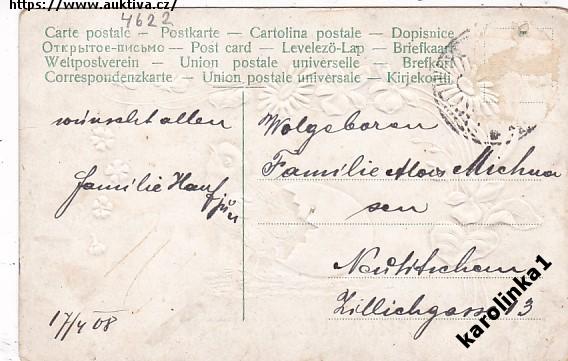 https://www.auktiva.cz/
4622
Carte postale — Postkarte — Cartolina postale — Dopisnice
Открытое-письмо — Post card — Levelező-Lap — Briefkaart
Weltpostverein — Union postale universelle — Brefkort
Correspondenzkarte — Union postale universale — Kirjekortti
wünscht allen
Familie Hanf
jun
17/4 08
Wolgeboren
Familie Alois Michna
sen
Neutitschein
Zillichgasse 3
karolinka1